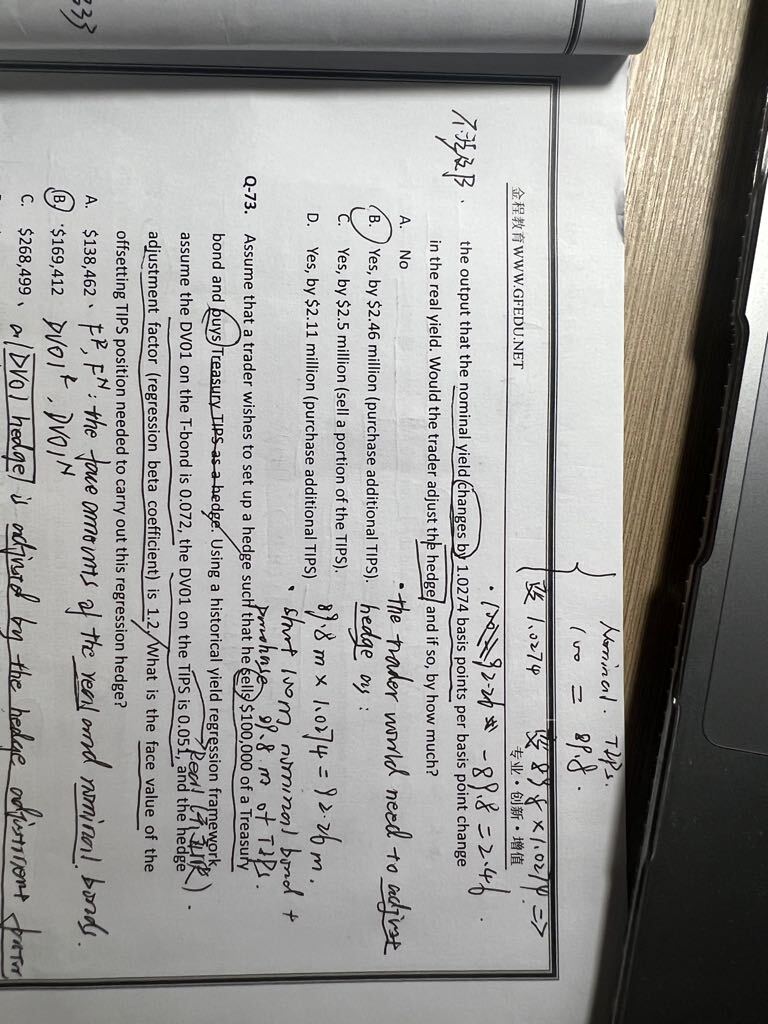 Nominal. TIPS.
100 = 89.8.
变 1.0274 变 89.8 × 1.0274 =>
金程教育 WWW.GFEDU.NET
专业·创新·增值
92.26 - 89.8 = 2.46.
不涉及β.
the output that the nominal yield changes by 1.0274 basis points per basis point change
in the real yield. Would the trader adjust the hedge, and if so, by how much?
A. No
• the trader would need to adjust
B. Yes, by $2.46 million (purchase additional TIPS).
hedge as:
C. Yes, by $2.5 million (sell a portion of the TIPS).
89.8 m × 1.0274 = 92.26 m.
D. Yes, by $2.11 million (purchase additional TIPS)
• short 100m nominal bond +
purchase 89.8 m of TIPS.
Q-73. Assume that a trader wishes to set up a hedge such that he sells $100,000 of a Treasury
bond and buys Treasury TIPS as a hedge. Using a historical yield regression framework,
assume the DV01 on the T-bond is 0.072, the DV01 on the TIPS is 0.051, and the hedge
adjustment factor (regression beta coefficient) is 1.2. What is the face value of the
offsetting TIPS position needed to carry out this regression hedge?
A. $138,462
F^R, F^N: the face amounts of the real and nominal bonds.
B. $169,412
DV01^R, DV01^N
C. $268,499
a DV01 hedge is adjusted by the hedge adjustment factor
333